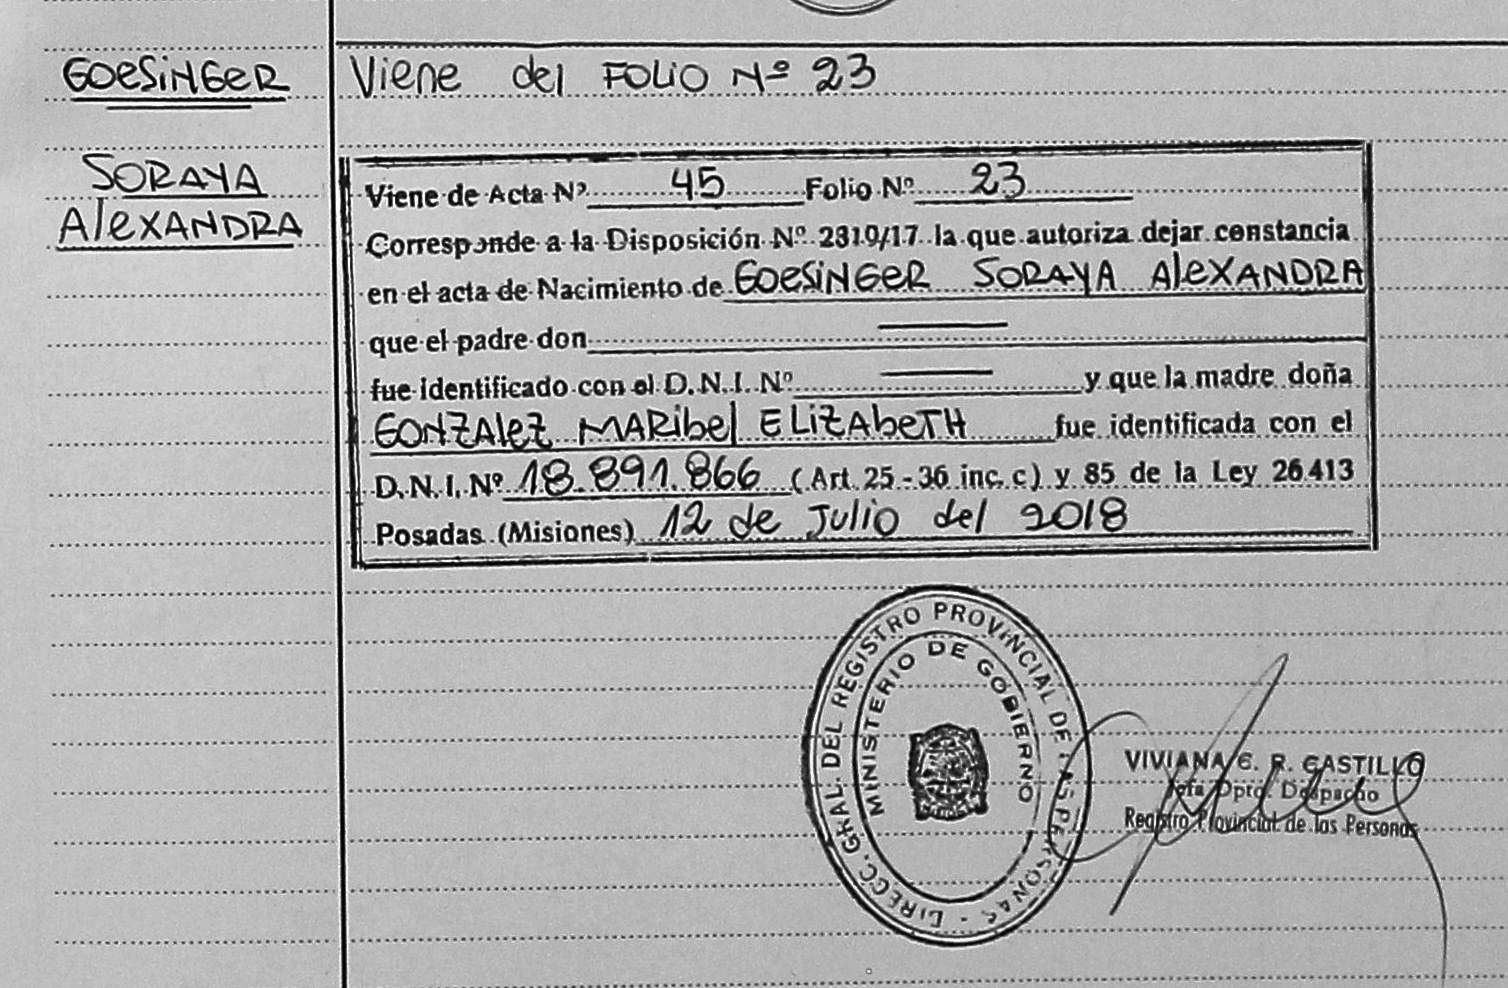 GOESINGER
SORAYA
ALEXANDRA
Viene del FOLIO Nº 23
Viene de Acta Nº 45 Folio Nº 23
Corresponde a la Disposición Nº 2310/17 la que autoriza dejar constancia
en el acta de Nacimiento de GOESINGER SORAYA ALEXANDRA
que el padre don
fue identificado con el D.N.I. Nº y que la madre doña
GONZALEZ MARIBEL ELIZABETH fue identificada con el
D.N.I. Nº 18.891.866 (Art. 25 - 36 inc. c) y 85 de la Ley 26413
Posadas (Misiones) 12 de Julio del 2018
DIRECC. GRAL. DEL REGISTRO PROVINCIAL DE LAS PERSONAS -
MINISTERIO DE GOBIERNO
VIVIANA E. R. CASTILLO
Jefa Dpto. Despacho
Registro Provincial de las Personas